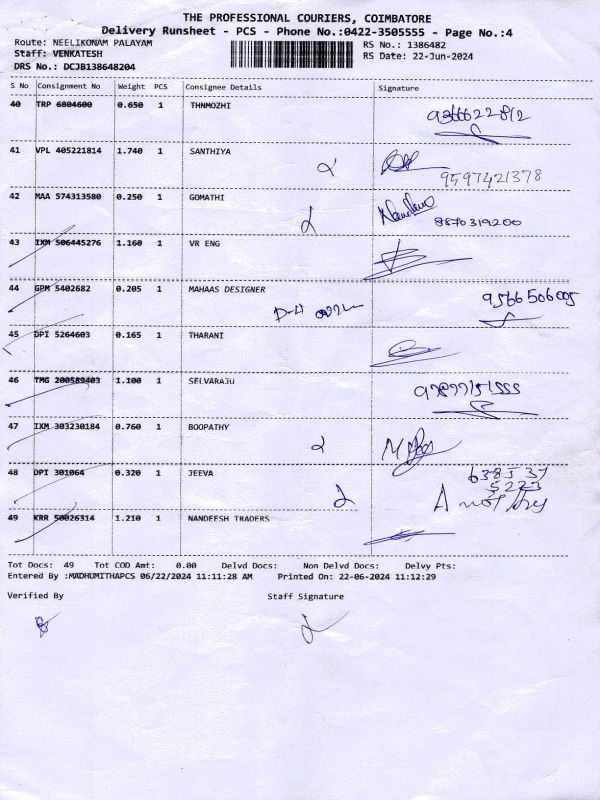 THE PROFESSIONAL COURIERS, COIMBATORE
Delivery Runsheet - PCS - Phone No.:0422-3505555 - Page No.:4
Route: NEELIKONAM PALAYAM
RS No.: 1386482
Staff: VENKATESH
RS Date: 22-Jun-2024
DRS No.: DCJB138648204
S No Consignment No Weight PCS Consignee Details Signature
40 TRP 6804600 0.650 1 THNMOZHI
9366622812
41 VPL 405221814 1.740 1 SANTHIYA
9597421378
42 MAA 574313580 0.250 1 GOMATHI
8870319200
43 IXM 506445276 1.160 1 VR ENG
44 GPM 5402682 0.205 1 MAHAAS DESIGNER
9566506005
45 DPI 5264603 0.165 1 THARANI
46 TMG 200589403 1.100 1 SELVARAJU
47 IXM 303230184 0.760 1 BOOPATHY
48 DPI 301064 0.320 1 JEEVA
638537
5223
49 KRR 50026314 1.210 1 NANDEESH TRADERS
Tot Docs: 49 Tot COD Amt: 0.00 Delvd Docs: Non Delvd Docs: Delvy Pts:
Entered By :MADHUMITHAPCS 06/22/2024 11:11:28 AM Printed On: 22-06-2024 11:12:29
Verified By Staff Signature